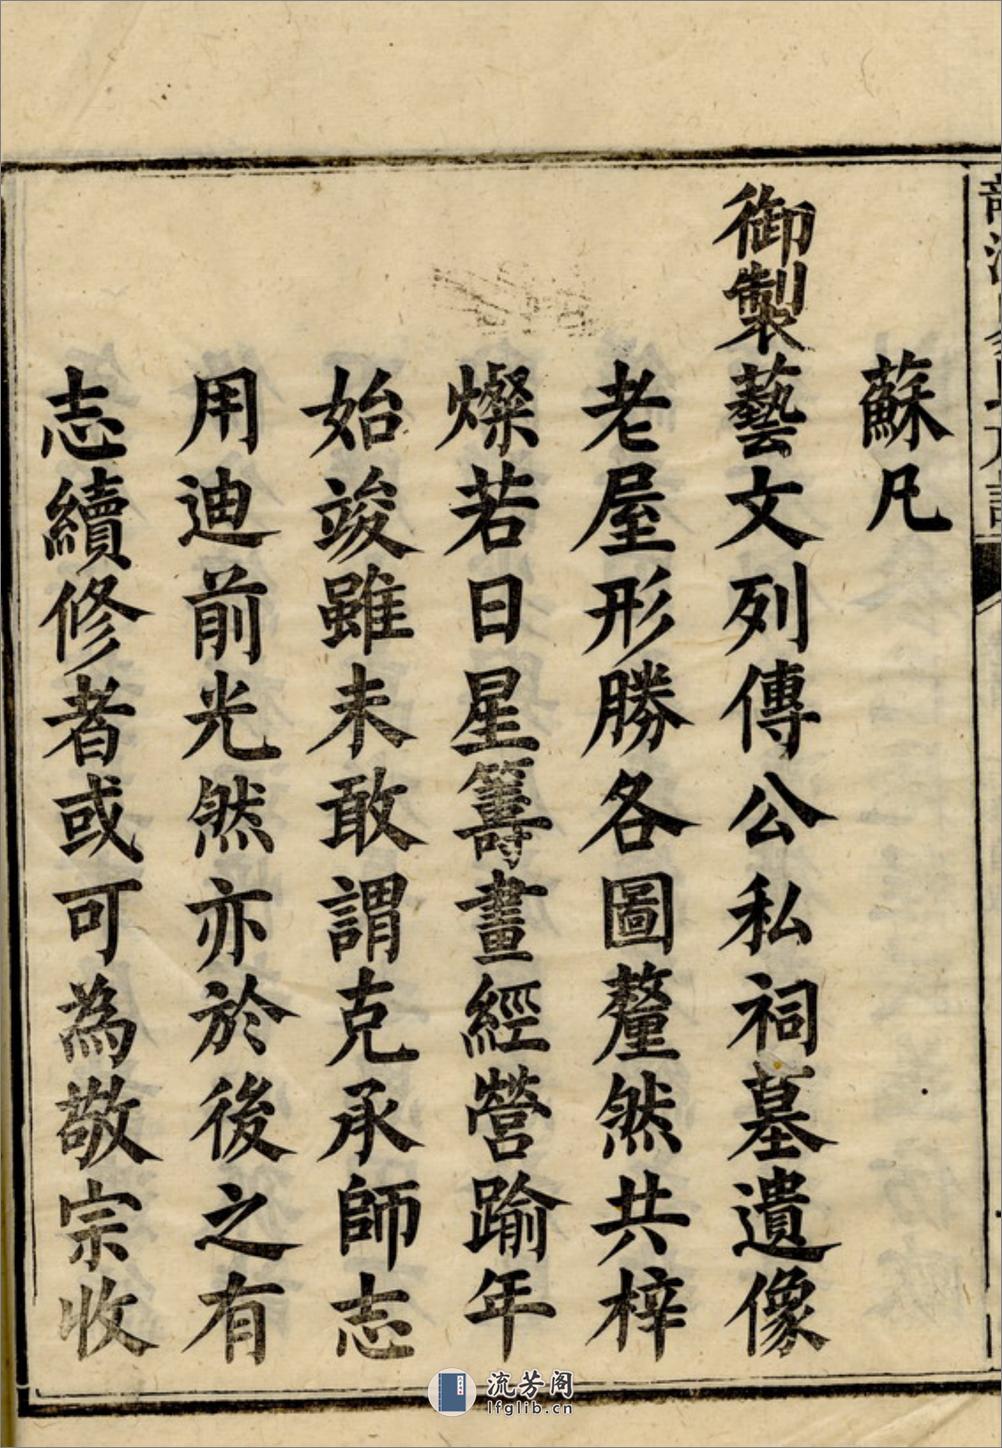 蘇凡
御製藝文列傳公私祠墓遺像
老屋形勝各圖釐然共梓
燦若日星籌畫經營踰年
始竣雖未敢謂克承師志
用迪前光然亦於後之有
志續修者或可為敬宗收
流芳阁
lfglib.cn